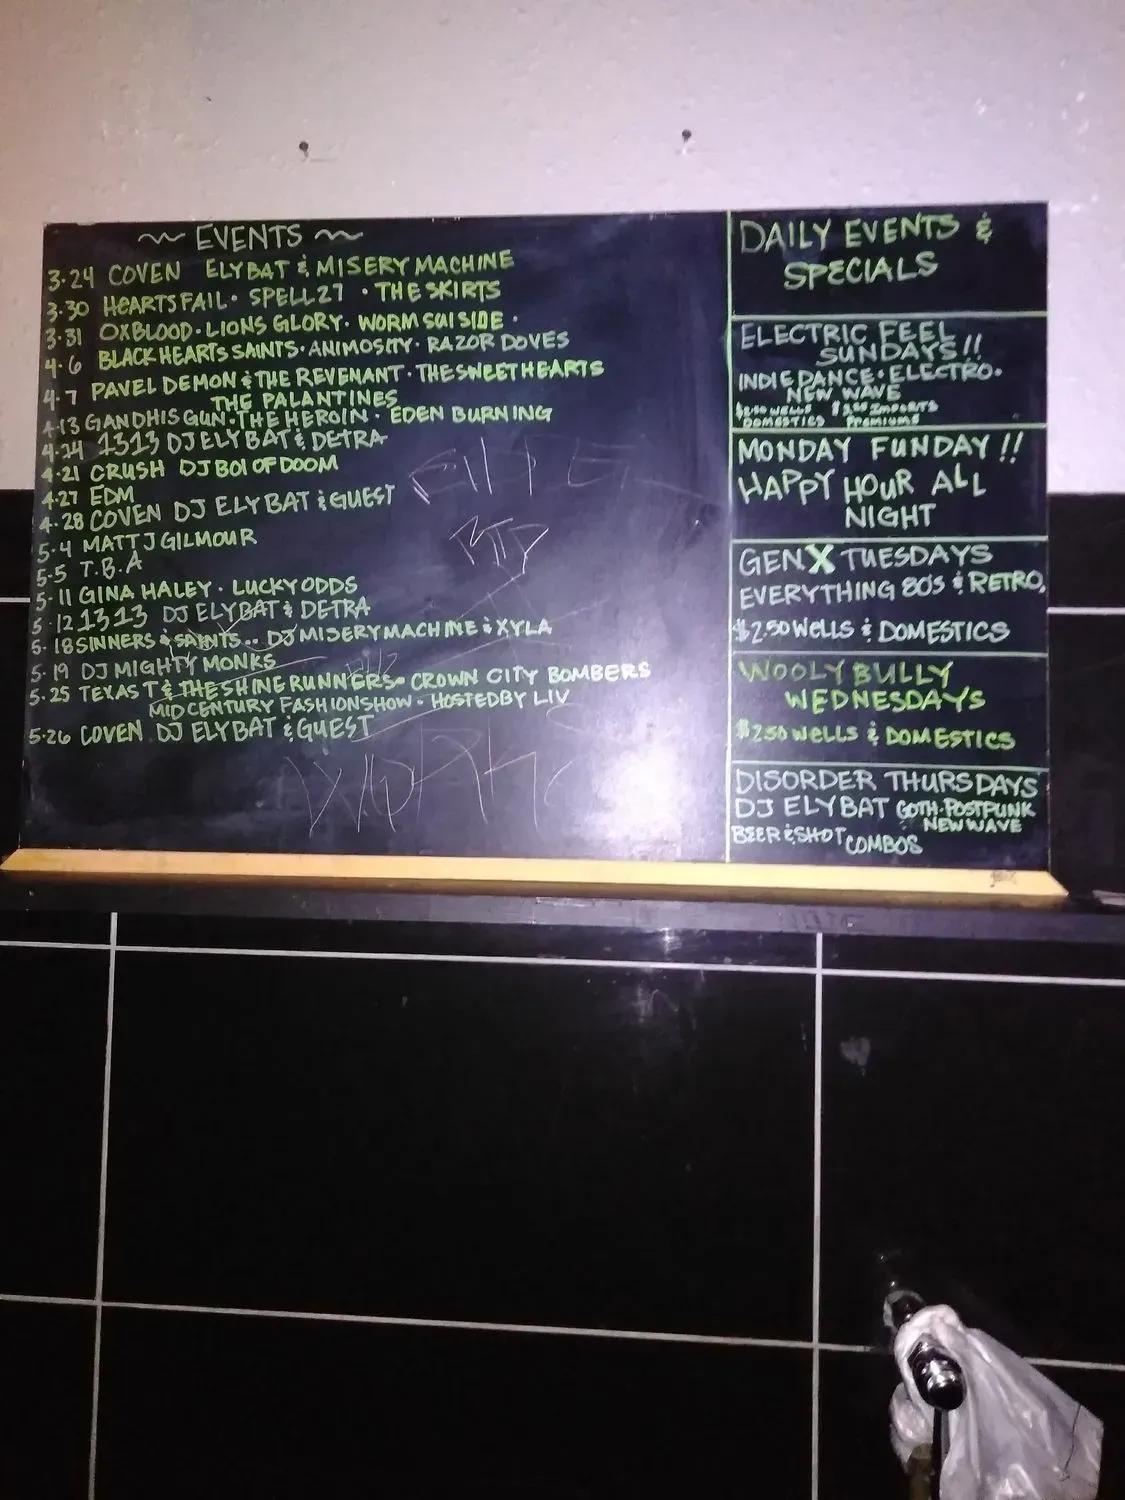 ~ EVENTS ~
3·24 COVEN ELYBAT & MISERY MACHINE
3·30 HEARTSFAIL · SPELL27 · THE SKIRTS
3·31 OXBLOOD · LIONS GLORY · WORM SUISIDE ·
4·6 BLACK HEARTS SAINTS · ANIMOSITY · RAZOR DOVES
4·7 PAVEL DEMON & THE REVENANT · THE SWEETHEARTS
THE PALANTINES
4·13 GANDHIS GUN · THE HEROIN · EDEN BURNING
1313 DJ ELYBAT & DETRA
4·21 CRUSH DJ BOI OF DOOM
4·27 EDM
4·28 COVEN DJ ELYBAT & GUEST
5·4 MATT J GILMOUR
5·5 T.B.A
5·11 GINA HALEY · LUCKY ODDS
5·12 1313 DJ ELYBAT & DETRA
5·18 SINNERS & SAINTS.. DJ MISERY MACHINE & XYLA
5·19 DJ MIGHTY MONKS
5·25 TEXAS T & THE SHINE RUNNERS · CROWN CITY BOMBERS
MID CENTURY FASHION SHOW · HOSTED BY LIV
5·26 COVEN DJ ELYBAT & GUEST
DAILY EVENTS &
SPECIALS
ELECTRIC FEEL
SUNDAYS!!
INDIE DANCE · ELECTRO ·
NEW WAVE
WELLS IMPORTS
DOMESTICS PREMIUMS
MONDAY FUNDAY!!
HAPPY HOUR ALL
NIGHT
GEN X TUESDAYS
EVERYTHING 80'S & RETRO,
$2.50 WELLS & DOMESTICS
WOOLY BULLY
WEDNESDAYS
$2.50 WELLS & DOMESTICS
DISORDER THURSDAYS
DJ ELYBAT GOTH · POSTPUNK
NEW WAVE
BEER & SHOT COMBOS